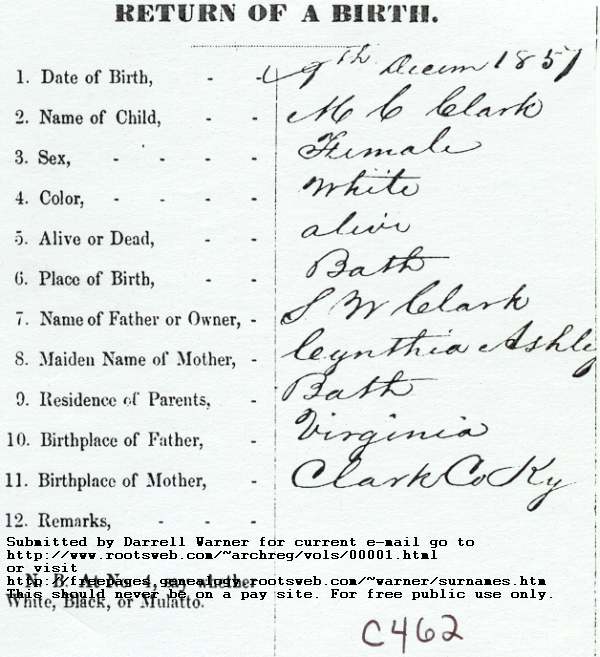 RETURN OF A BIRTH.
1. Date of Birth, - - 9th Decem 1857
2. Name of Child, - - M C Clark
3. Sex, - - - - Female
4. Color, - - - - White
5. Alive or Dead, - - alive
6. Place of Birth, - - Bath
7. Name of Father or Owner, - S W Clark
8. Maiden Name of Mother, - Cynthia Ashley
9. Residence of Parents, - Bath
10. Birthplace of Father, - Virginia
11. Birthplace of Mother, - Clark Co Ky
12. Remarks, - -
Submitted by Darrell Warner for current e-mail go to
http://www.rootsweb.com/~archreg/vols/00001.html
or visit
http://freepages.genealogy.rootsweb.com/~warner/surnames.htm
N. B. At No. 4, say whether
This should never be on a pay site. For free public use only.
White, Black, or Mulatto.
C462